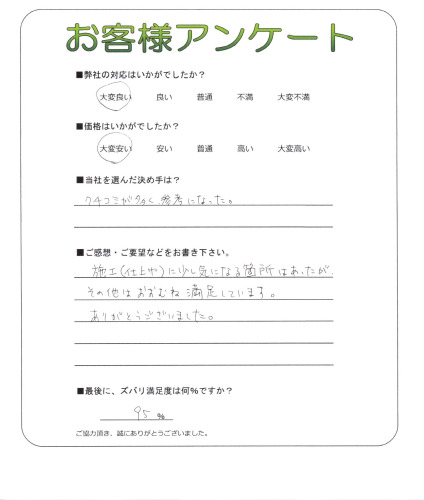 お客様アンケート
■弊社の対応はいかがでしたか？
大変良い 良い 普通 不満 大変不満
■価格はいかがでしたか？
大変安い 安い 普通 高い 大変高い
■当社を選んだ決め手は？
クチコミが多く、参考になった。
■ご感想・ご要望などをお書き下さい。
施工(仕上や)に少し気になる箇所はあったが、
その他はおおむね満足しています。
ありがとうございました。
■最後に、ズバリ満足度は何%ですか？
95 %
ご協力頂き、誠にありがとうございました。